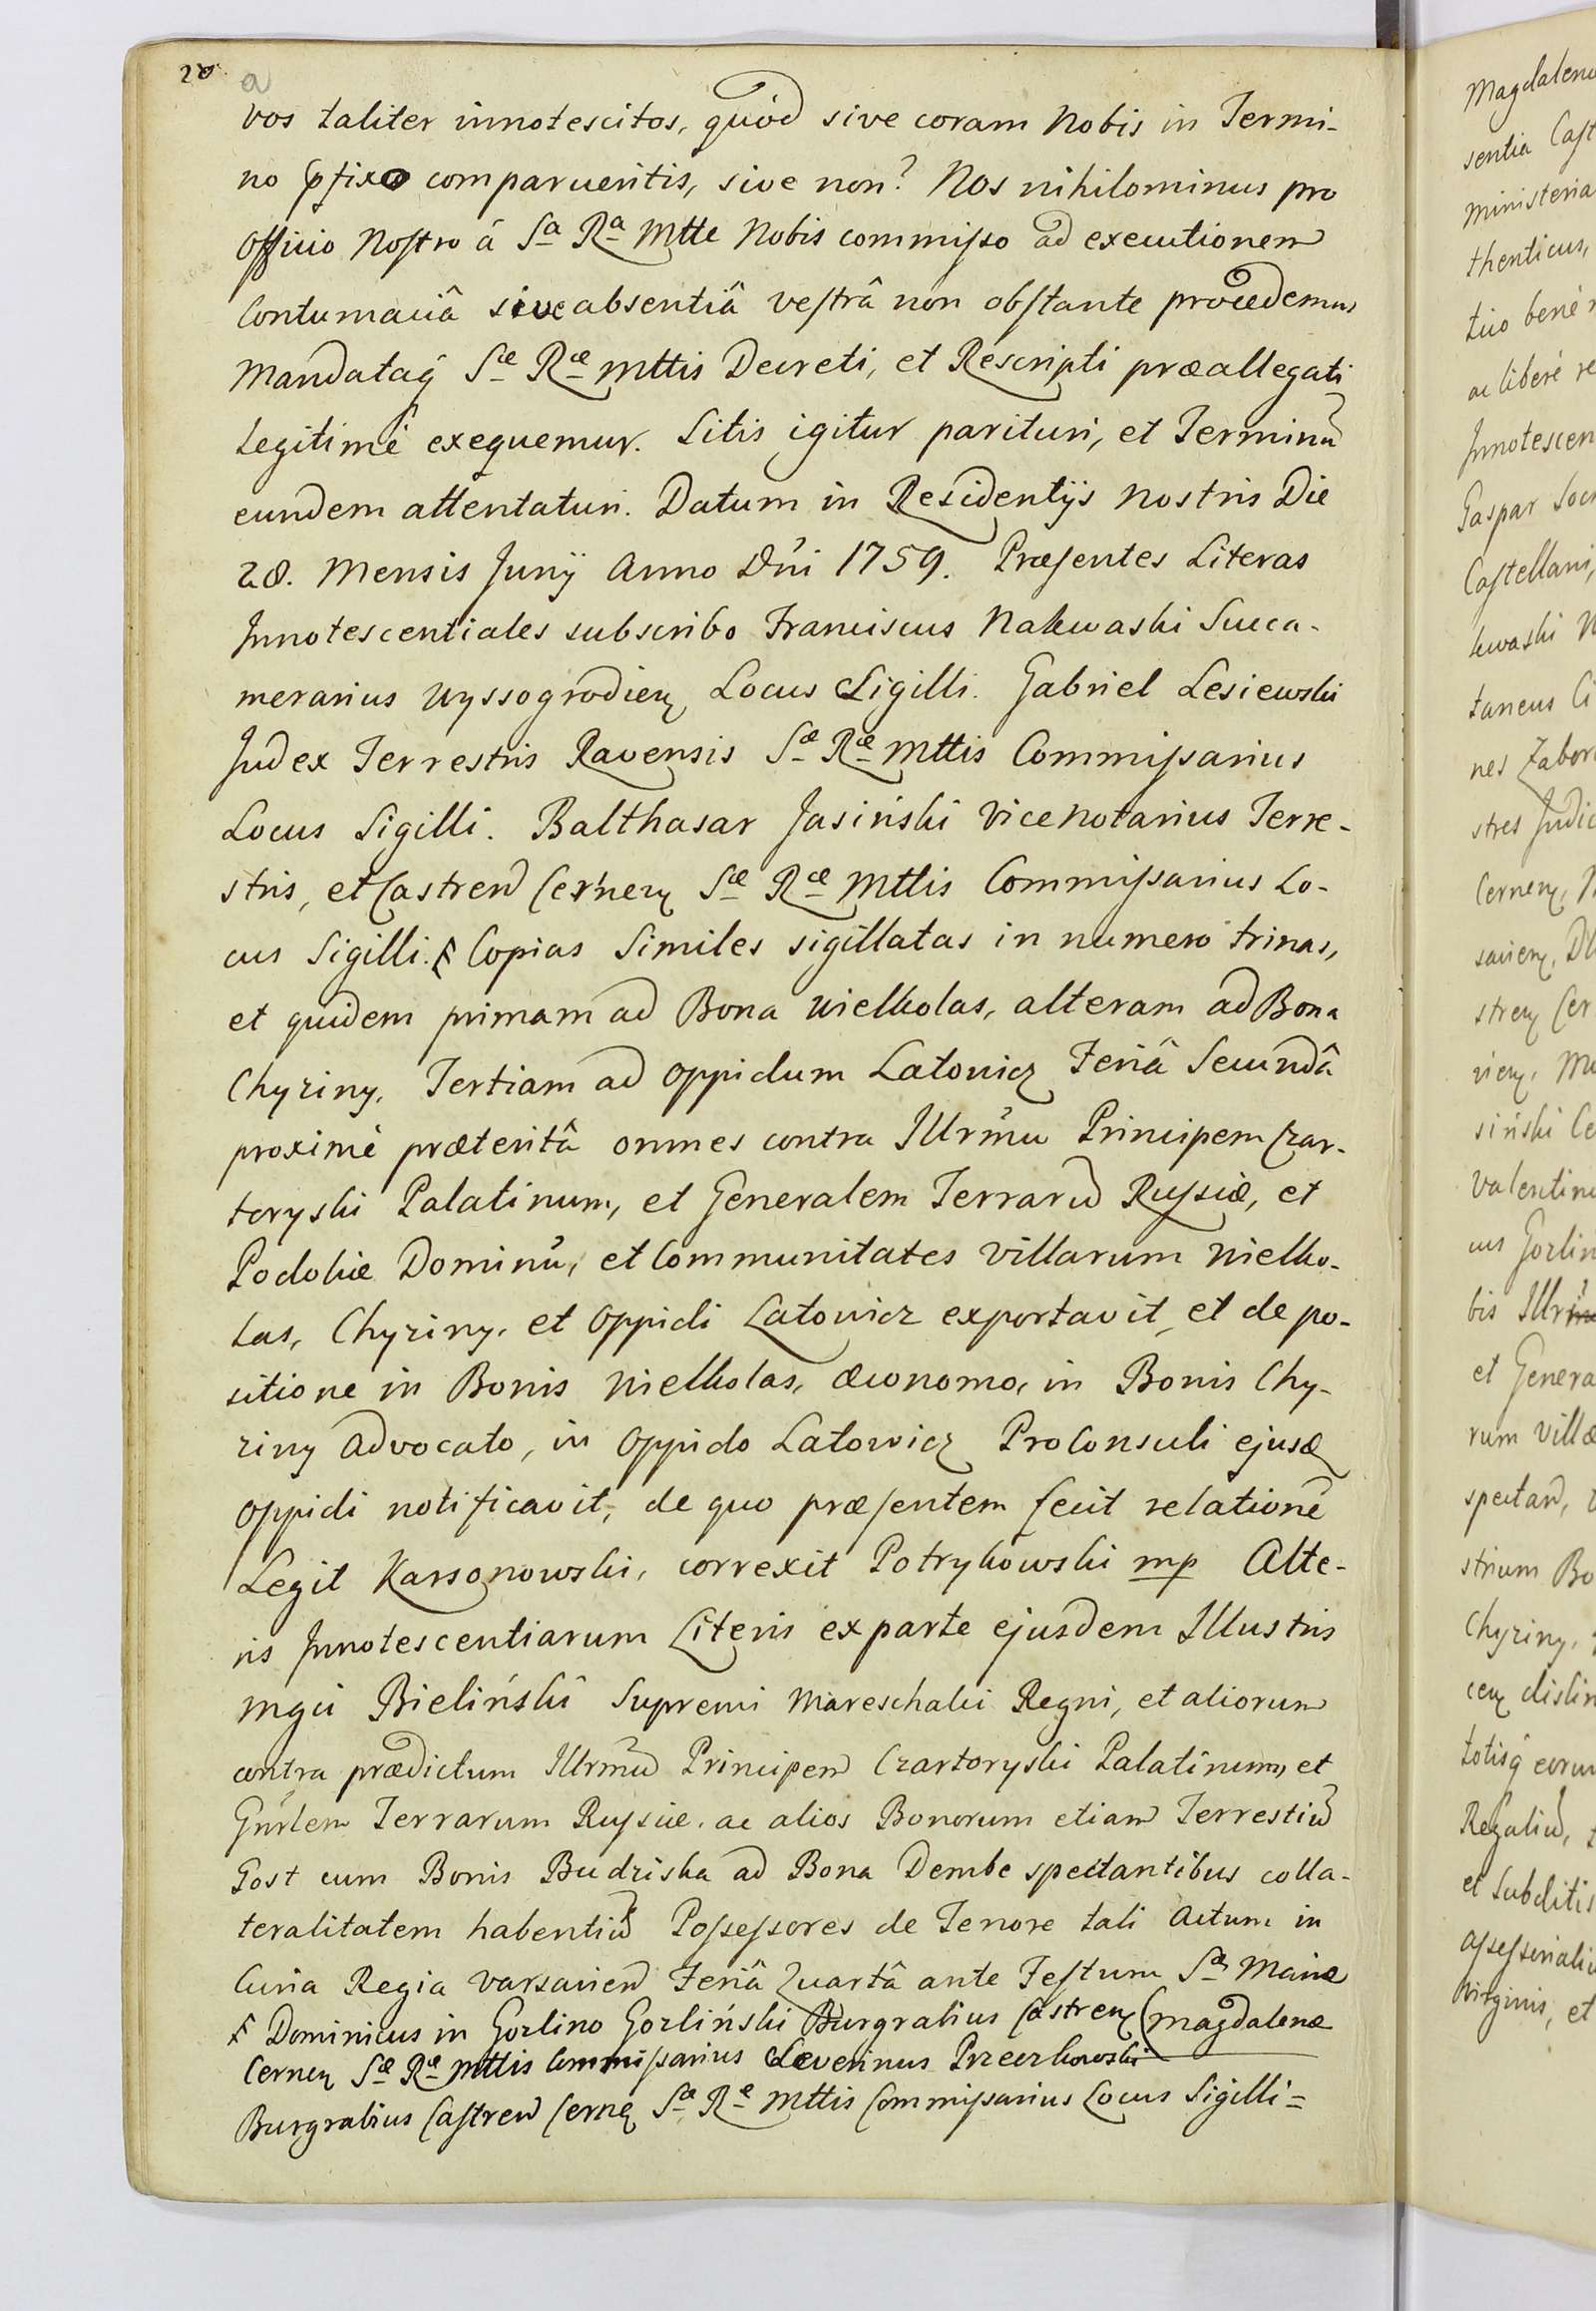 20
a
vos taliter innotescitos, quòd sive coram Nobis in Termi-
no p̃fixo comparueritis, sive non? Nos nihilominus pro
Officio Nostro à Sa Ra Mtte Nobis commisso ad executionem
Contumaciâ sive absentiâ vestrâ non obstante procedemus
Mandataq̃ Sæ Ræ Mttis Decreti, et Rescripti præallegati
Legitimè exequemur. Sitis igitur parituri, et Terminũ
eundem attentaturi. Datum in Residentijs Nostris Die
28. Mensis Junij Anno Dñi 1759. Præsentes Literas
Innotescentiales subscribo Franciscus Nakwaski Succa-
merarius Wyssogrodień Locus Sigilli. Gabriel Lesiewski
Judex Terrestris Ravensis Sæ Ræ Mttis Commissarius
Locus Sigilli. Balthasar Jasiński Vicenotarius Terre-
stris, et Castren Cerneñ Sæ Ræ Mttis Commissarius Lo-
cus Sigilli. F Copias Similes sigillatas in numero trinas,
et quidem primam ad Bona Wielkolas, alteram ad Bona
Chyziny, Tertiam ad Oppidum Latowicz Feriâ Secundâ
proximè præteritâ omnes contra Illrm̃u Principem Czar-
toryski Palatinum, et Generalem Terrarũ Russiæ, et
Podoliæ Dominũ, et Communitates Villarum Wielko-
las, Chyziny, et Oppidi Latowicz exportavit, et de po-
sitione in Bonis Wielkolas, Œconomo, in Bonis Chy-
ziny Advocato, in Oppido Latowicz ProConsuli ejusđ
Oppidi notificavit, de quo præsentem fecit relationẽ
Legit Karsonowski, correxit Potrykowski mp Alte-
ris Innotescentiarum Literis ex parte ejusdem Illustris
Mgci Bieliński Supremi Mareschalci Regni, et aliorum
contra prædictum Illrm̃u Principem Czartoryski Palatinum, et
Gñrlem Terrarum Russiæ, ac alios Bonorum etiam Terrestiũ
Gost cum Bonis Budziska ad Bona Dembe spectantibus colla-
teralitatem habentiũ Possessores de Tenore tali Actum in
Curia Regia Varsavien Feriâ Quartâ ante Festum Sæ Mariæ
F Dominicus in Gozlino Gozliński Burgrabius Castreñ (Magdalenæ
Cerneñ Sæ Ræ Mttis Commissarius Severinus Przeczkowski
Burgrabius Castren Cerneñ Sæ Ræ Mttis Commissarius Locus Sigilli=
Magdalenæ
sentia Cast
Ministeria
thenticus,
tuo benè
ac liberè re
Innotescen
Gaspar
Castellani,
kwaski N
taneus Ci
nes Zabor
stres Judic
Cerneñ,
streñ Cer
siński Ce
Valentinu
cus Gozlin
bis Illrm
et Genera
rum Villæ
spectan,
strium Bo
Chyziny,
ceñ distin
totisq̃ eoru
Regaliũ,
et Subditis
Assessoriali
Virginis, et